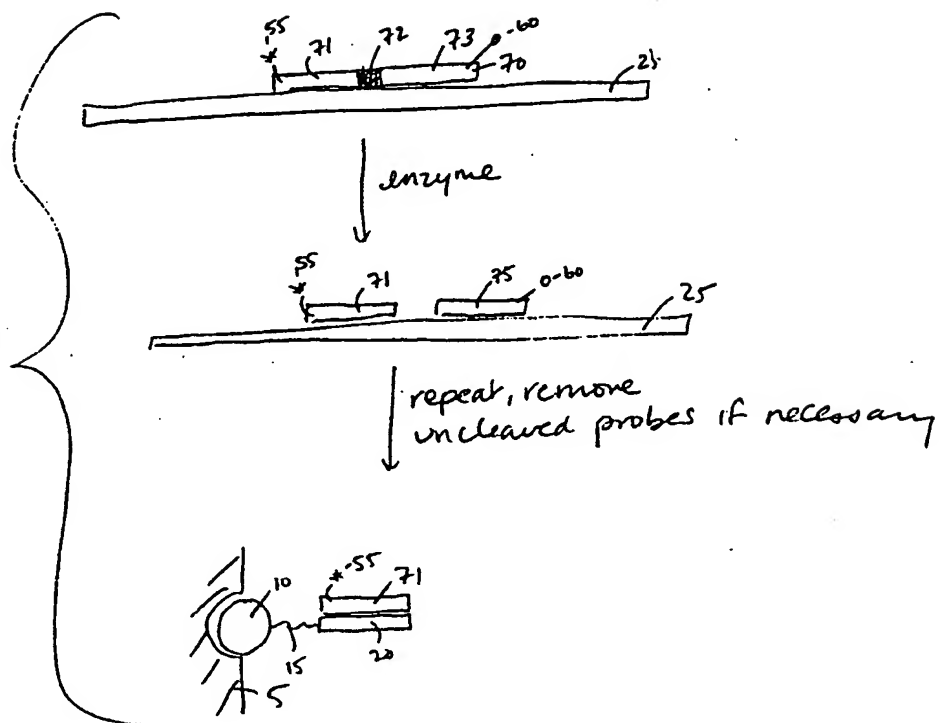 *-55 71 72 73 o-60
70 25
enzyme
*-55 71 75 o-60
25
repeat, remove
uncleaved probes if necessary
10 *-55 71
15 20
5